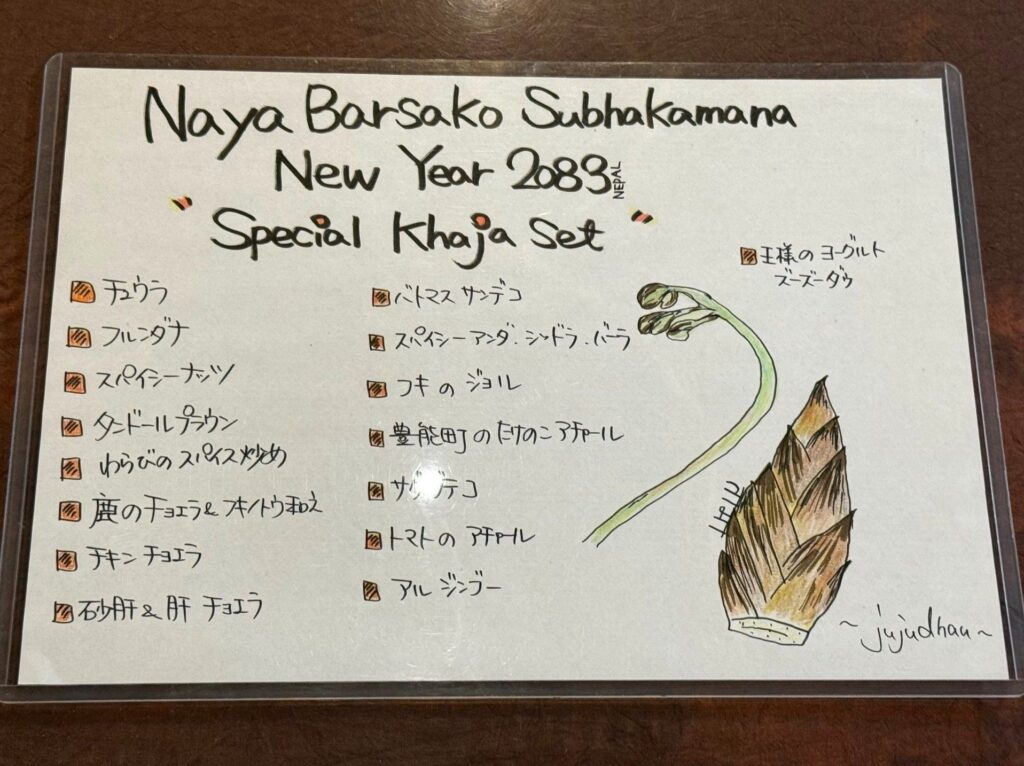 Naya Barsako Subhakamana
New Year 2083 NEPAL
"Special Khaja Set"
チュウラ
フルンダナ
スパイシーナッツ
タンドールプラウン
わらびのスパイス炒め
鹿のチョエラ&フキノトウ和え
チキンチョエラ
砂肝&肝 チョエラ
バトマス サンデコ
スパイシーアンダ・シャドラ・バーラ
フキの ジョル
豊能町のたけのこアチャール
トマトの アチャール
アル ジンブー
王様の ヨーグルト
ズーズーダゥ
~jujudhau~